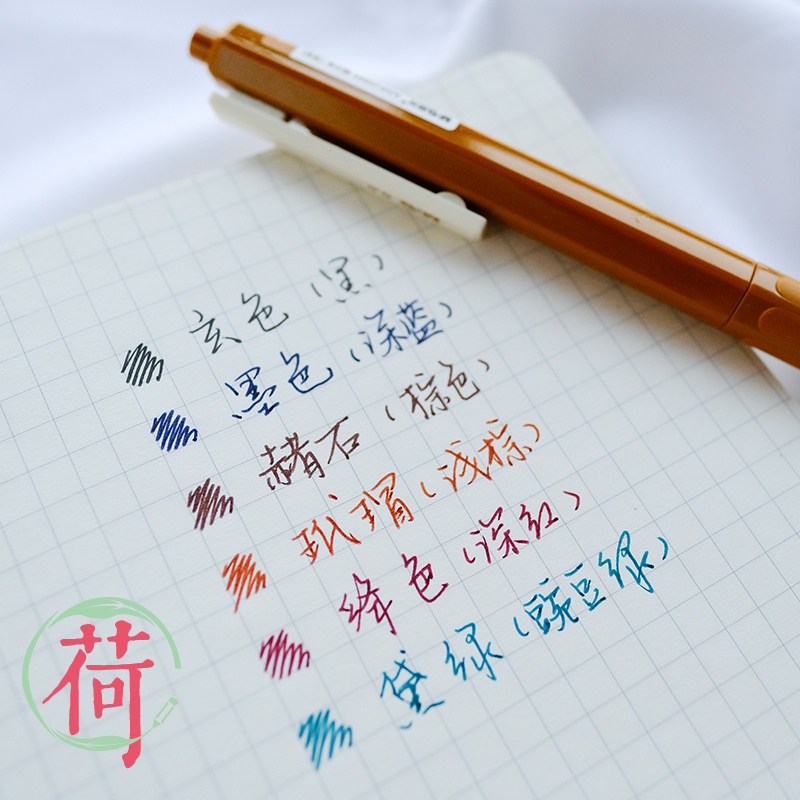 玄色(黑)
墨色(深蓝)
赭石(棕色)
玳瑁(浅棕)
绛色(深红)
黛绿(豌豆绿)
荷